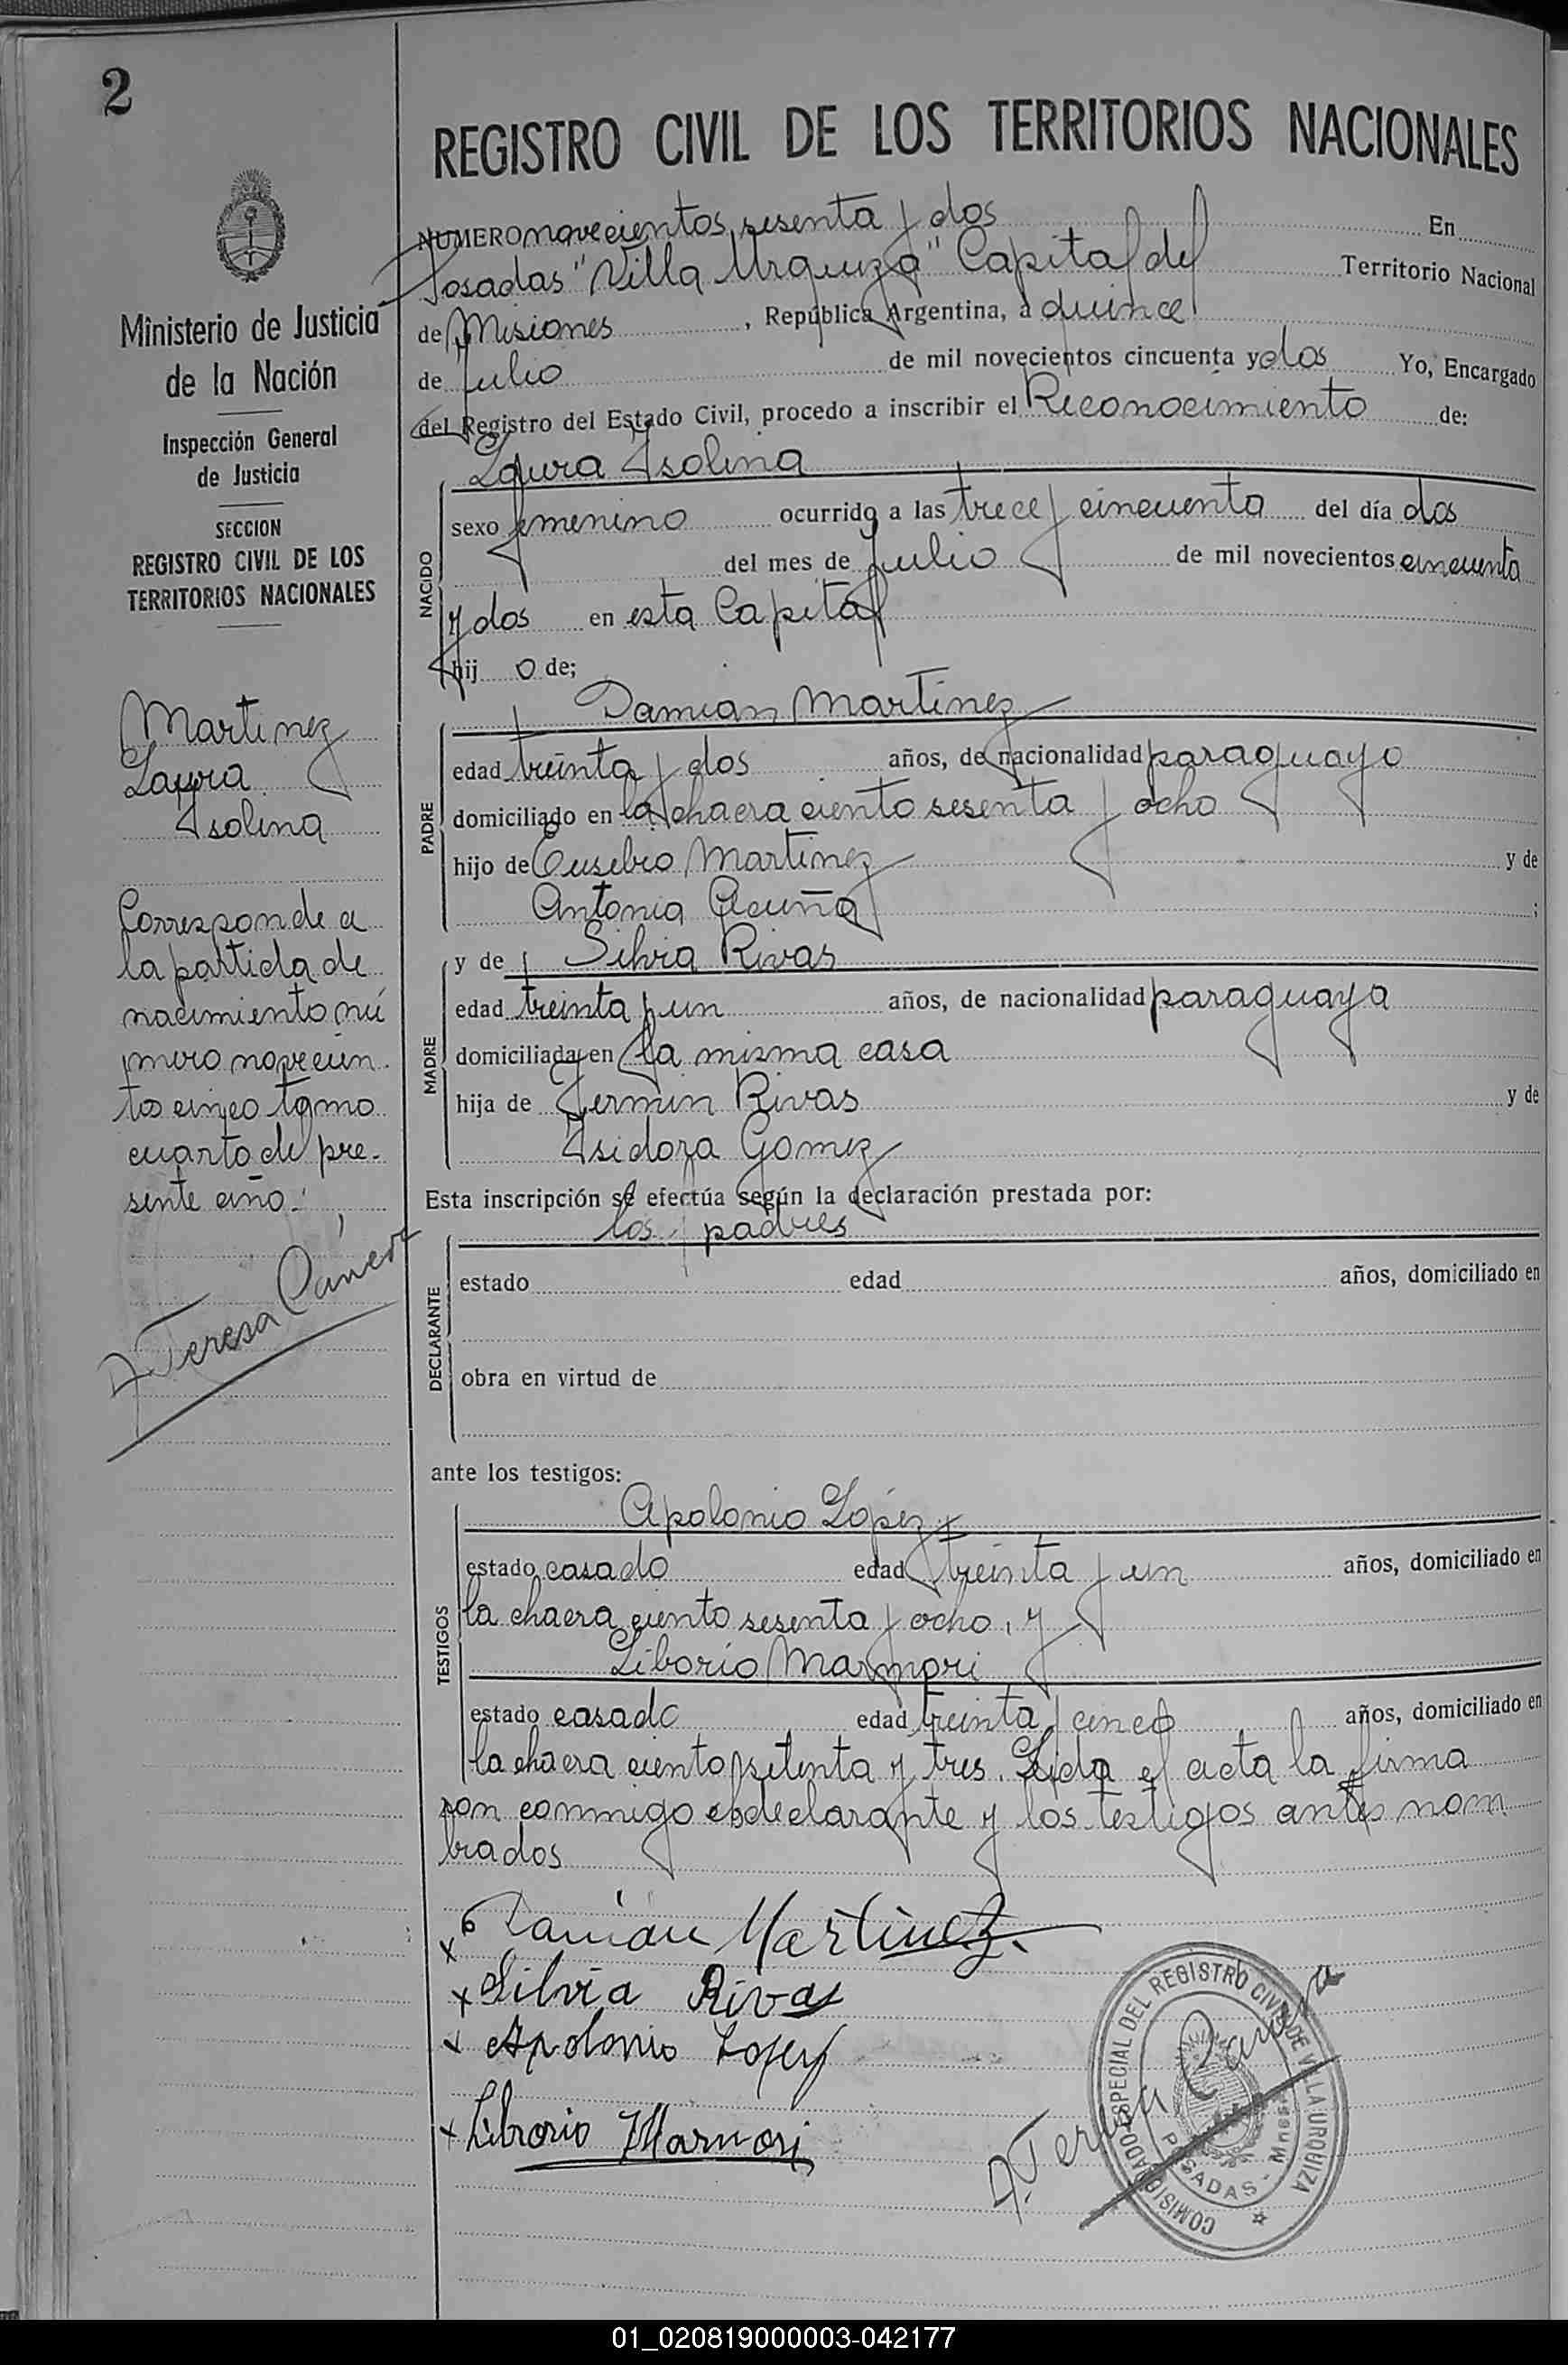 2
Ministerio de Justicia
de la Nación
Inspección General
de Justicia
SECCION
REGISTRO CIVIL DE LOS
TERRITORIOS NACIONALES
Martinez
Laura
Isolina
Corresponde a
la partida de
nacimiento nú
mero novecien.
tos cinco tomo
cuarto del pre-
sente año.
A. Teresa
REGISTRO CIVIL DE LOS TERRITORIOS NACIONALES
NUMERO novecientos sesenta y dos En
Posadas "Villa Urquiza" Capital del Territorio Nacional
de Misiones , República Argentina, a quince
de julio de mil novecientos cincuenta y dos Yo, Encargado
del Registro del Estado Civil, procedo a inscribir el Reconocimiento de:
Laura Isolina
NACIDO
sexo femenino ocurrido a las trece y cincuenta del día dos
del mes de julio de mil novecientos cincuenta
y dos en esta Capital
hij o de;
Damian Martinez
PADRE
edad treinta y dos años, de nacionalidad paraguayo
domiciliado en la chacra ciento sesenta y ocho
hijo de Eusebio Martinez y de
Antonia Acuña ;
MADRE
y de Silvia Rivas
edad treinta y un años, de nacionalidad paraguaya
domiciliada en la misma casa
hija de Fermin Rivas y de
Isidora Gomez
Esta inscripción se efectúa según la declaración prestada por:
los padres
DECLARANTE
estado edad años, domiciliado en
obra en virtud de
ante los testigos:
Apolonio López
TESTIGOS
estado casado edad treinta y un años, domiciliado en
la chacra ciento sesenta y ocho, y
Liborio Marmori
estado casado edad treinta y cinco años, domiciliado en
la chacra ciento setenta y tres. Leida el acta la firma
ron conmigo el declarante y los testigos antes nom
brados
x Damian Martinez.
x Silvia Rivas
x Apolonio Lopez
x Liborio Marmori
A. Teresa
COMISIONADO ESPECIAL DEL REGISTRO CIVIL DE VILLA URQUIZA
POSADAS - Mnes
01_020819000003-042177